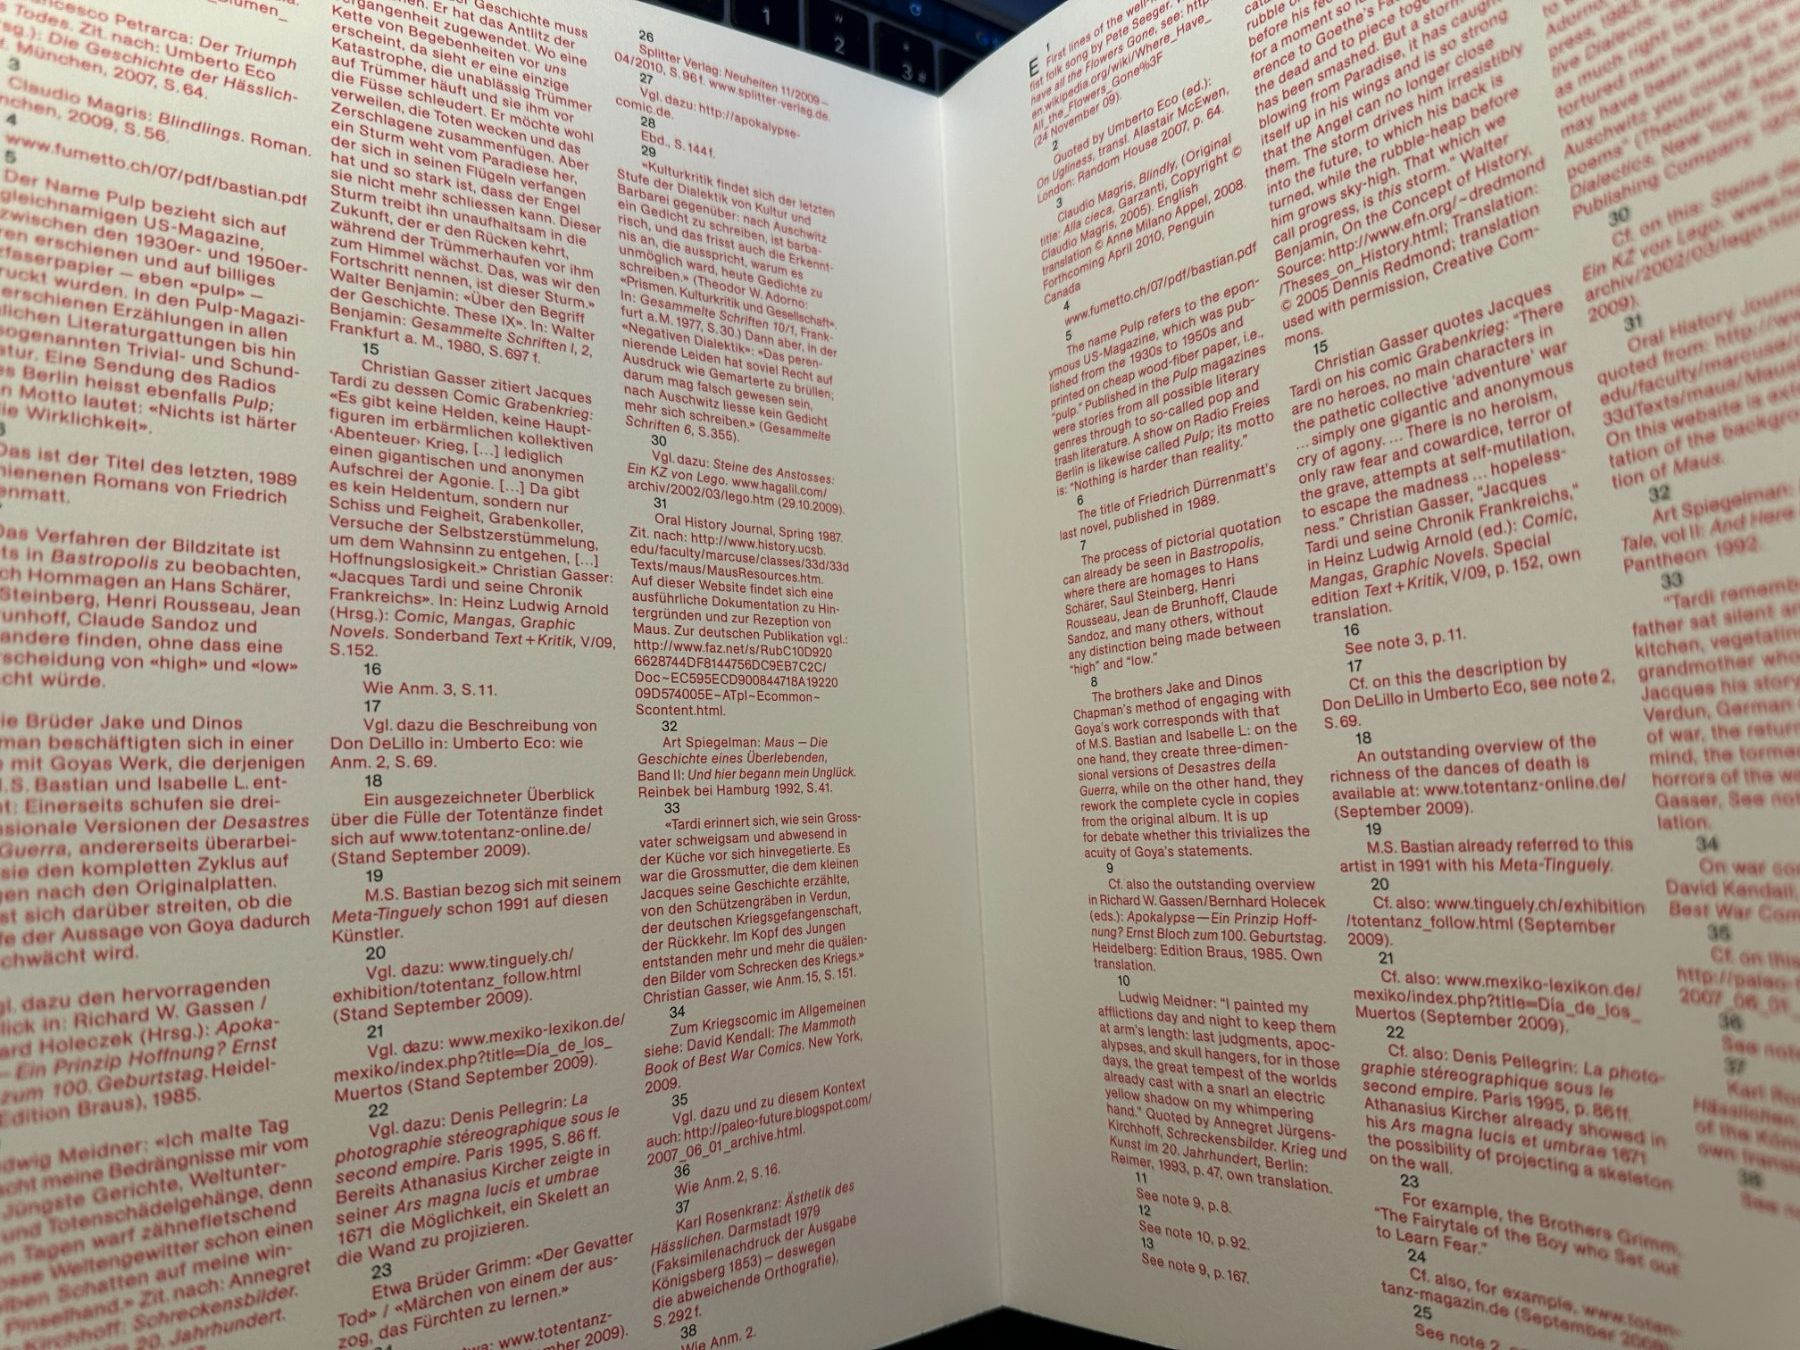 1
2
3
ncesco Petrarca: Der Triumph
s Todes. Zit. nach: Umberto Eco
sg.): Die Geschichte der Hässlich-
t. München, 2007, S. 64.
3
Claudio Magris: Blindlings. Roman.
nchen, 2009, S. 56.
4
www.fumetto.ch/07/pdf/bastian.pdf
5
Der Name Pulp bezieht sich auf
gleichnamigen US-Magazine,
zwischen den 1930er- und 1950er-
ren erschienen und auf billiges
faserpapier – eben «pulp» –
ruckt wurden. In den Pulp-Magazi-
erschienen Erzählungen in allen
lichen Literaturgattungen bis hin
sogenannten Trivial- und Schund-
atur. Eine Sendung des Radios
es Berlin heisst ebenfalls Pulp;
n Motto lautet: «Nichts ist härter
ie Wirklichkeit».
Das ist der Titel des letzten, 1989
hienenen Romans von Friedrich
enmatt.
Das Verfahren der Bildzitate ist
ts in Bastropolis zu beobachten,
ch Hommagen an Hans Schärer,
Steinberg, Henri Rousseau, Jean
unhoff, Claude Sandoz und
andere finden, ohne dass eine
rscheidung von «high» und «low»
cht würde.
ie Brüder Jake und Dinos
man beschäftigten sich in einer
e mit Goyas Werk, die derjenigen
I.S. Bastian und Isabelle L. ent-
t: Einerseits schufen sie drei-
nsionale Versionen der Desastres
Guerra, andererseits überarbei-
sie den kompletten Zyklus auf
gen nach den Originalplatten.
st sich darüber streiten, ob die
fe der Aussage von Goya dadurch
chwächt wird.
gl. dazu den hervorragenden
lick in: Richard W. Gassen /
ard Holeczek (Hrsg.): Apoka-
– Ein Prinzip Hoffnung? Ernst
zum 100. Geburtstag. Heidel-
Edition Braus), 1985.
dwig Meidner: «Ich malte Tag
acht meine Bedrängnisse mir vom
Jüngste Gerichte, Weltunter-
und Totenschädelgehänge, denn
n Tagen warf zähnefletschend
osse Weltengewitter schon einen
elben Schatten auf meine win-
Pinselhand.» Zit. nach: Annegret
Kirchhoff: Schreckensbilder.
im 20. Jahrhundert.
r Geschichte muss
ergangenheit zugewendet. Wo eine
Kette von Begebenheiten vor uns
erscheint, da sieht er eine einzige
Katastrophe, die unablässig Trümmer
auf Trümmer häuft und sie ihm vor
die Füsse schleudert. Er möchte wohl
verweilen, die Toten wecken und das
Zerschlagene zusammenfügen. Aber
ein Sturm weht vom Paradiese her,
der sich in seinen Flügeln verfangen
hat und so stark ist, dass der Engel
sie nicht mehr schliessen kann. Dieser
Sturm treibt ihn unaufhaltsam in die
Zukunft, der er den Rücken kehrt,
während der Trümmerhaufen vor ihm
zum Himmel wächst. Das, was wir den
Fortschritt nennen, ist dieser Sturm.»
Walter Benjamin: «Über den Begriff
der Geschichte. These IX». In: Walter
Benjamin: Gesammelte Schriften I, 2,
Frankfurt a. M., 1980, S. 697 f.
15
Christian Gasser zitiert Jacques
Tardi zu dessen Comic Grabenkrieg:
«Es gibt keine Helden, keine Haupt-
figuren im erbärmlichen kollektiven
‹Abenteuer› Krieg, [...] lediglich
einen gigantischen und anonymen
Aufschrei der Agonie. [...] Da gibt
es kein Heldentum, sondern nur
Schiss und Feigheit, Grabenkoller,
Versuche der Selbstzerstümmelung,
um dem Wahnsinn zu entgehen, [...]
Hoffnungslosigkeit.» Christian Gasser:
«Jacques Tardi und seine Chronik
Frankreichs». In: Heinz Ludwig Arnold
(Hrsg.): Comic, Mangas, Graphic
Novels. Sonderband Text + Kritik, V/09,
S.152.
16
Wie Anm. 3, S. 11.
17
Vgl. dazu die Beschreibung von
Don DeLillo in: Umberto Eco: wie
Anm. 2, S. 69.
18
Ein ausgezeichneter Überblick
über die Fülle der Totentänze findet
sich auf www.totentanz-online.de/
(Stand September 2009).
19
M.S. Bastian bezog sich mit seinem
Meta-Tinguely schon 1991 auf diesen
Künstler.
20
Vgl. dazu: www.tinguely.ch/
exhibition/totentanz_follow.html
(Stand September 2009).
21
Vgl. dazu: www.mexiko-lexikon.de/
mexiko/index.php?title=Día_de_los_
Muertos (Stand September 2009).
22
Vgl. dazu: Denis Pellegrin: La
photographie stéreographique sous le
second empire. Paris 1995, S. 86 ff.
Bereits Athanasius Kircher zeigte in
seiner Ars magna lucis et umbrae
1671 die Möglichkeit, ein Skelett an
die Wand zu projizieren.
23
Etwa Brüder Grimm: «Der Gevatter
Tod» / «Märchen von einem der aus-
zog, das Fürchten zu lernen.»
www.totentanz-
2009).
26
Splitter Verlag: Neuheiten 11/2009 –
04/2010, S. 96 f. www.splitter-verlag.de.
27
Vgl. dazu: http://apokalypse-
comic.de.
28
Ebd., S. 144 f.
29
«Kulturkritik findet sich der letzten
Stufe der Dialektik von Kultur und
Barbarei gegenüber: nach Auschwitz
ein Gedicht zu schreiben, ist barba-
risch, und das frisst auch die Erkennt-
nis an, die ausspricht, warum es
unmöglich ward, heute Gedichte zu
schreiben.» (Theodor W. Adorno:
«Prismen. Kulturkritik und Gesellschaft».
In: Gesammelte Schriften 10/1, Frank-
furt a. M. 1977, S. 30.) Dann aber, in der
«Negativen Dialektik»: «Das peren-
nierende Leiden hat soviel Recht auf
Ausdruck wie Gemarterte zu brüllen;
darum mag falsch gewesen sein,
nach Auschwitz liesse kein Gedicht
mehr sich schreiben.» (Gesammelte
Schriften 6, S. 355).
30
Vgl. dazu: Steine des Anstosses:
Ein KZ von Lego. www.hagalil.com/
archiv/2002/03/lego.htm (29.10.2009).
31
Oral History Journal, Spring 1987.
Zit. nach: http://www.history.ucsb.
edu/faculty/marcuse/classes/33d/33d
Texts/maus/MausResources.htm.
Auf dieser Website findet sich eine
ausführliche Dokumentation zu Hin-
tergründen und zur Rezeption von
Maus. Zur deutschen Publikation vgl.:
http://www.faz.net/s/RubC10D920
6628744DF8144756DC9EB7C2C/
Doc~EC595ECD900844718A19220
09D574005E~ATpl~Ecommon~
Scontent.html.
32
Art Spiegelman: Maus – Die
Geschichte eines Überlebenden,
Band II: Und hier begann mein Unglück.
Reinbek bei Hamburg 1992, S. 41.
33
«Tardi erinnert sich, wie sein Gross-
vater schweigsam und abwesend in
der Küche vor sich hinvegetierte. Es
war die Grossmutter, die dem kleinen
Jacques seine Geschichte erzählte,
von den Schützengräben in Verdun,
der deutschen Kriegsgefangenschaft,
der Rückkehr. Im Kopf des Jungen
entstanden mehr und mehr die quälen-
den Bilder vom Schrecken des Kriegs.»
Christian Gasser, wie Anm. 15, S. 151.
34
Zum Kriegscomic im Allgemeinen
siehe: David Kendall: The Mammoth
Book of Best War Comics. New York,
2009.
35
Vgl. dazu und zu diesem Kontext
auch: http://paleo-future.blogspot.com/
2007_06_01_archive.html.
36
Wie Anm. 2, S. 16.
37
Karl Rosenkranz: Ästhetik des
Hässlichen. Darmstadt 1979
(Faksimilenachdruck der Ausgabe
Königsberg 1853) – deswegen
die abweichende Orthografie),
S. 292 f.
38
Wie Anm. 2.
E
1
First lines of the well-
fist folk song by Pete Seeger.
have all the Flowers Gone, see: http
en.wikipedia.org/wiki/Where_Have_
All_the_Flowers_Gone%3F
(24 November 09).
2
Quoted by Umberto Eco (ed.):
On Ugliness, transl. Alastair McEwen,
London: Random House 2007, p. 64.
3
Claudio Magris, Blindly, (Original
title: Alla cieca, Garzanti, Copyright ©
Claudio Magris, 2005). English
translation © Anne Milano Appel, 2008.
Forthcoming April 2010, Penguin
Canada
4
www.fumetto.ch/07/pdf/bastian.pdf
5
The name Pulp refers to the epon-
ymous US-Magazine, which was pub-
lished from the 1930s to 1950s and
printed on cheap wood-fiber paper, i.e.,
“pulp.” Published in the Pulp magazines
were stories from all possible literary
genres through to so-called pop and
trash literature. A show on Radio Freies
Berlin is likewise called Pulp; its motto
is: “Nothing is harder than reality.”
6
The title of Friedrich Dürrenmatt’s
last novel, published in 1989.
7
The process of pictorial quotation
can already be seen in Bastropolis,
where there are homages to Hans
Schärer, Saul Steinberg, Henri
Rousseau, Jean de Brunhoff, Claude
Sandoz, and many others, without
any distinction being made between
“high” and “low.”
8
The brothers Jake and Dinos
Chapman’s method of engaging with
Goya’s work corresponds with that
of M.S. Bastian and Isabelle L: on the
one hand, they create three-dimen-
sional versions of Desastres della
Guerra, while on the other hand, they
rework the complete cycle in copies
from the original album. It is up
for debate whether this trivializes the
acuity of Goya’s statements.
9
Cf. also the outstanding overview
in Richard W. Gassen/Bernhard Holecek
(eds.): Apokalypse—Ein Prinzip Hoff-
nung? Ernst Bloch zum 100. Geburtstag.
Heidelberg: Edition Braus, 1985. Own
translation.
10
Ludwig Meidner: “I painted my
afflictions day and night to keep them
at arm’s length: last judgments, apoc-
alypses, and skull hangers, for in those
days, the great tempest of the worlds
already cast with a snarl an electric
yellow shadow on my whimpering
hand.” Quoted by Annegret Jürgens-
Kirchhoff, Schreckensbilder. Krieg und
Kunst im 20. Jahrhundert, Berlin:
Reimer, 1993, p. 47, own translation.
11
See note 9, p. 8.
12
See note 10, p. 92.
13
See note 9, p. 167.
rubble
before his fee
for a moment so
erence to Goethe’s Fau
the dead and to piece toge
has been smashed. But a storm
blowing from Paradise, it has caught
itself up in his wings and is so strong
that the Angel can no longer close
them. The storm drives him irresistibly
into the future, to which his back is
turned, while the rubble-heap before
him grows sky-high. That which we
call progress, is this storm.” Walter
Benjamin, On the Concept of History.
Source: http://www.efn.org/~dredmond
/Theses_on_History.html; Translation:
© 2005 Dennis Redmond; translation
used with permission, Creative Com-
mons.
15
Christian Gasser quotes Jacques
Tardi on his comic Grabenkrieg: “There
are no heroes, no main characters in
the pathetic collective ‘adventure’ war
... simply one gigantic and anonymous
cry of agony. ... There is no heroism,
only raw fear and cowardice, terror of
the grave, attempts at self-mutilation,
to escape the madness ... hopeless-
ness.” Christian Gasser, “Jacques
Tardi und seine Chronik Frankreichs,”
in Heinz Ludwig Arnold (ed.): Comic,
Mangas, Graphic Novels. Special
edition Text + Kritik, V/09, p. 152, own
translation.
16
See note 3, p. 11.
17
Cf. on this the description by
Don DeLillo in Umberto Eco, see note 2,
S. 69.
18
An outstanding overview of the
richness of the dances of death is
available at: www.totentanz-online.de/
(September 2009).
19
M.S. Bastian already referred to this
artist in 1991 with his Meta-Tinguely.
20
Cf. also: www.tinguely.ch/exhibition
/totentanz_follow.html (September
2009).
21
Cf. also: www.mexiko-lexikon.de/
mexiko/index.php?title=Día_de_los_
Muertos (September 2009).
22
Cf. also: Denis Pellegrin: La photo-
graphie stéreographique sous le
second empire. Paris 1995, p. 86 ff.
Athanasius Kircher already showed in
his Ars magna lucis et umbrae 1671
the possibility of projecting a skeleton
on the wall.
23
For example, the Brothers Grimm,
“The Fairytale of the Boy who Set out
to Learn Fear.”
24
Cf. also, for example, www.toten-
tanz-magazin.de (September 2009)
25
See note 2,
press,
tive Dialectic
as much right to
tortured man has to
may have been wrong
Auschwitz you could
poems” (Theodor W.
Dialectics. New York:
Publishing Company
30
Cf. on this: Steine
Ein KZ von Lego. www.
archiv/2002/03/lego.htm
2009).
31
Oral History Journal
quoted from: http://ww
edu/faculty/marcuse/
33dTexts/maus/Maus
On this website is ext
tation of the backgro
tion of Maus.
32
Art Spiegelman:
Tale, vol II: And Here
Pantheon 1992.
33
“Tardi remembe
father sat silent an
kitchen, vegetating
grandmother who
Jacques his story
Verdun, German
of war, the return
mind, the torme
horrors of the wa
Gasser, See not
lation.
34
On war com
David Kendall,
Best War Com
35
Cf. on this
http://paleo-f
2007_06_01_
36
See note
37
Karl Ro
Hässlichen
of the Kön
own trans
38
See n